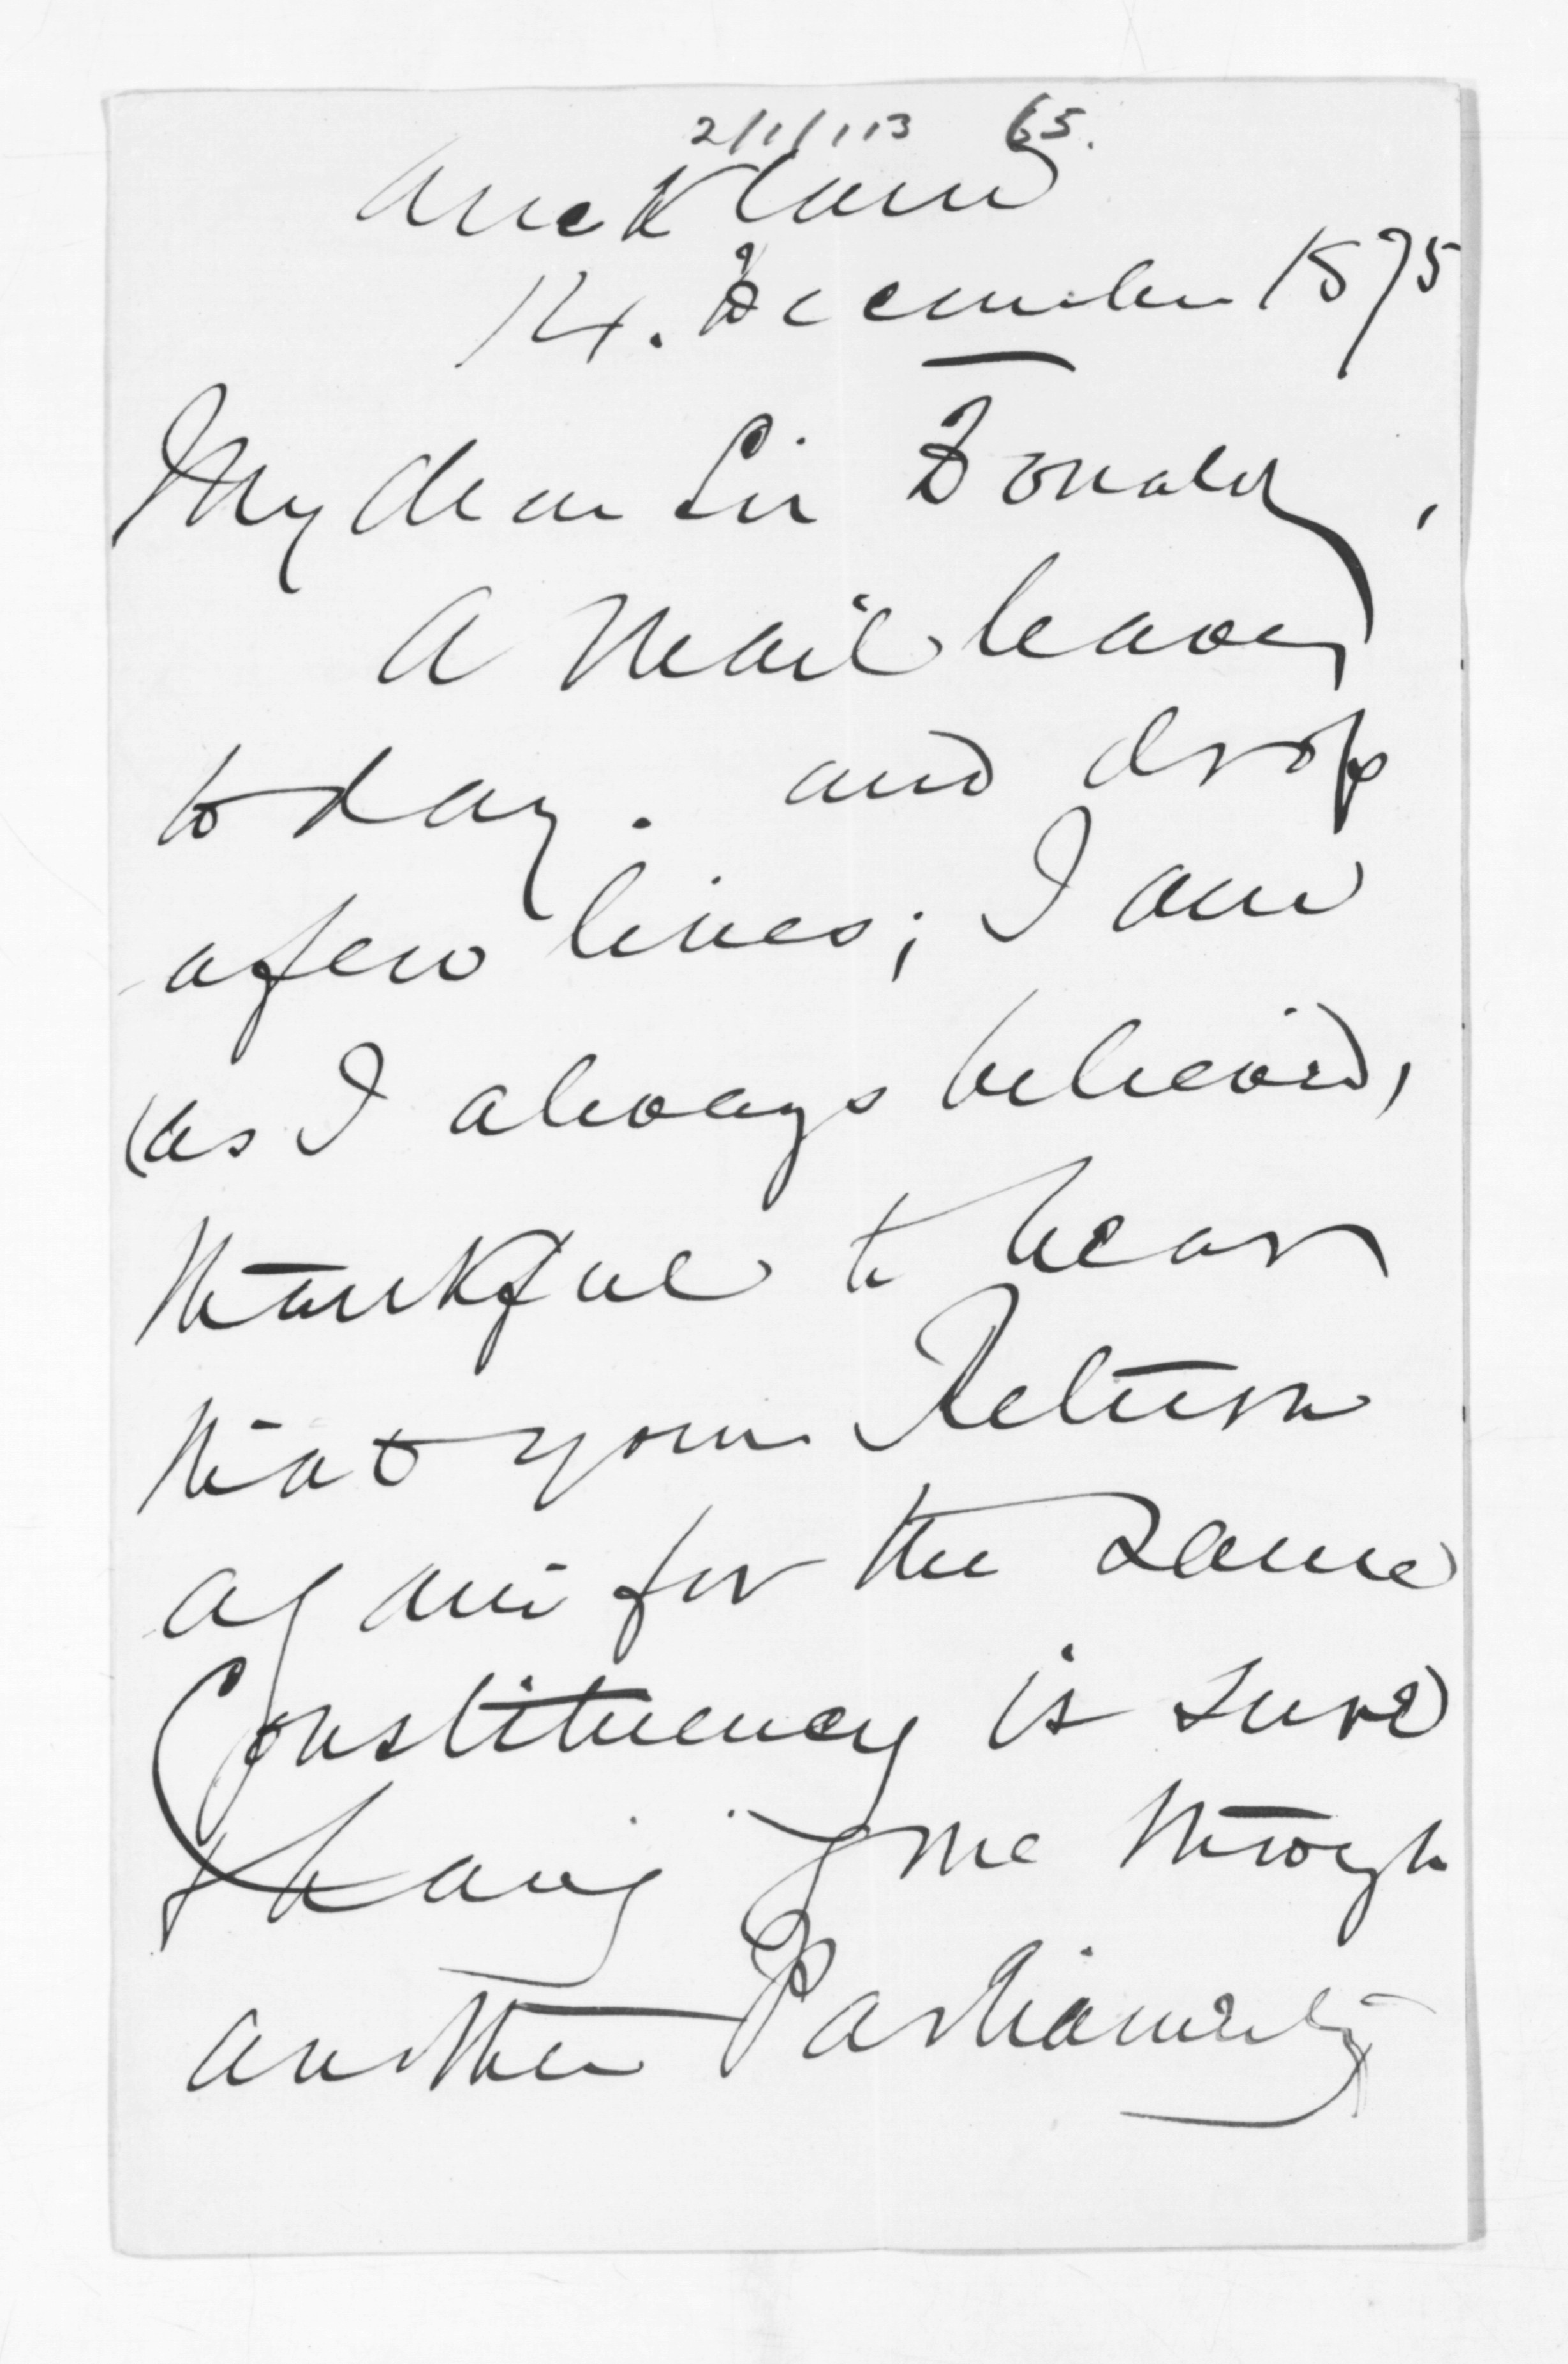 2/1/113 65.
Auckland
14. December 1875
My dear Sir Donald,
A Mail leaves
to day. and drop
a few lines; I am
(as I always believed,
thankful to hear
that your Return
again for the same
Constituency is sure
& having gone through
another Parliamenty